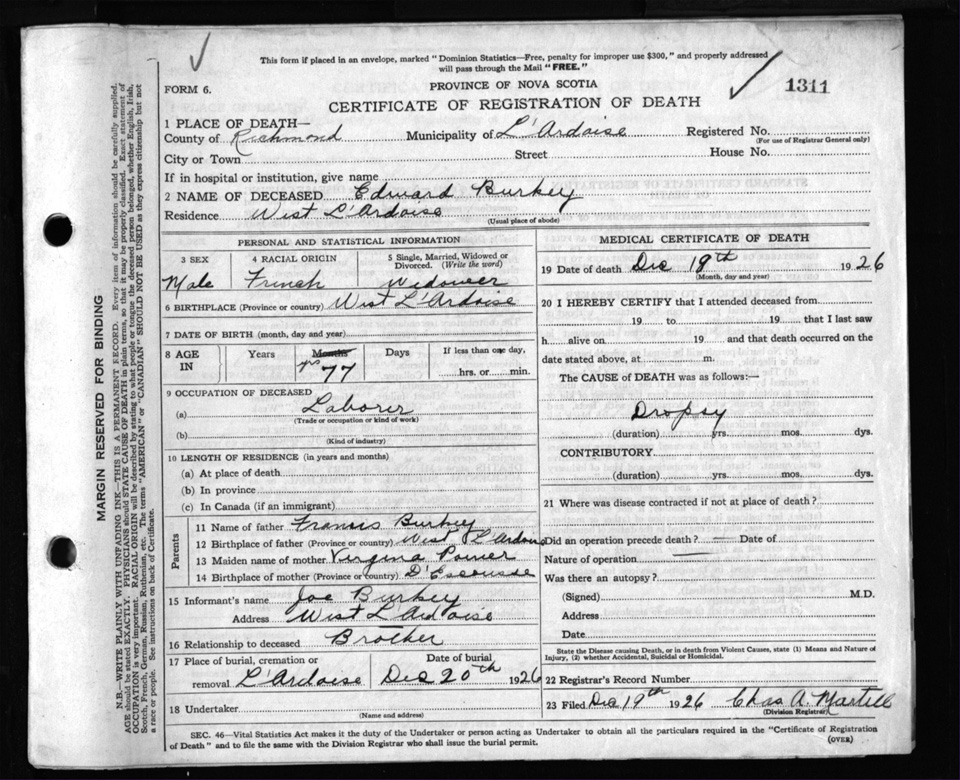 This form if placed in an envelope, marked "Dominion Statistics—Free, penalty for improper use $300," and properly addressed
will pass through the Mail "FREE."
FORM 6.
PROVINCE OF NOVA SCOTIA
1311
CERTIFICATE OF REGISTRATION OF DEATH
1 PLACE OF DEATH—
County of Richmond Municipality of L'Ardoise Registered No.
(For use of Registrar General only)
City or Town Street House No.
If in hospital or institution, give name
2 NAME OF DECEASED Edward Burkey
Residence West L'Ardoise
(Usual place of abode)
PERSONAL AND STATISTICAL INFORMATION
3 SEX 4 RACIAL ORIGIN 5 Single, Married, Widowed or
Divorced. (Write the word)
Male French Widower
6 BIRTHPLACE (Province or country) West L'Ardoise
7 DATE OF BIRTH (month, day and year)
8 AGE IN Years Months Days If less than one day,
yrs 77 hrs. or min.
9 OCCUPATION OF DECEASED
(a) Laborer
(Trade or occupation or kind of work)
(b)
(Kind of industry)
10 LENGTH OF RESIDENCE (in years and months)
(a) At place of death
(b) In province
(c) In Canada (if an immigrant)
Parents
11 Name of father Francis Burkey
12 Birthplace of father (Province or country) West L'Ardoise
13 Maiden name of mother Virgina Power
14 Birthplace of mother (Province or country) D'Escousse
15 Informant's name Joe Burkey
Address West L'Ardoise
16 Relationship to deceased Brother
17 Place of burial, cremation or Date of burial
removal L'Ardoise Dec 20th 1926
18 Undertaker
(Name and address)
MEDICAL CERTIFICATE OF DEATH
19 Date of death Dec 18th 1926
(Month, day and year)
20 I HEREBY CERTIFY that I attended deceased from
19 to 19 that I last saw
h alive on 19 and that death occurred on the
date stated above, at m.
The CAUSE of DEATH was as follows:—
Dropsy
(duration) yrs. mos. dys.
CONTRIBUTORY
(duration) yrs. mos. dys.
21 Where was disease contracted if not at place of death?
Did an operation precede death? — Date of
Nature of operation —
Was there an autopsy?
(Signed) M.D.
Address
Date
State the Disease causing Death, or in death from Violent Causes, state (1) Means and Nature of
Injury, (2) whether Accidental, Suicidal or Homicidal.
22 Registrar's Record Number
23 Filed Dec 19th 1926 Chas A. Martell
(Division Registrar)
SEC. 46—Vital Statistics Act makes it the duty of the Undertaker or person acting as Undertaker to obtain all the particulars required in the "Certificate of Registration
of Death" and to file the same with the Division Registrar who shall issue the burial permit.
(OVER)
MARGIN RESERVED FOR BINDING
N.B.—WRITE PLAINLY WITH UNFADING INK—THIS IS A PERMANENT RECORD. Every item of information should be carefully supplied.
AGE should be stated EXACTLY. PHYSICIANS should STATE CAUSE OF DEATH in plain terms, so that it may be properly classified. Exact statement of
OCCUPATION is very important. RACIAL ORIGIN will be described by stating to what people or tongue the deceased person belonged, whether English, Irish,
Scotch, French, German, Russian, Ruthenian, etc. The terms "AMERICAN" or "CANADIAN" SHOULD NOT BE USED as they express citizenship but not
a race or people. See instructions on back of Certificate.